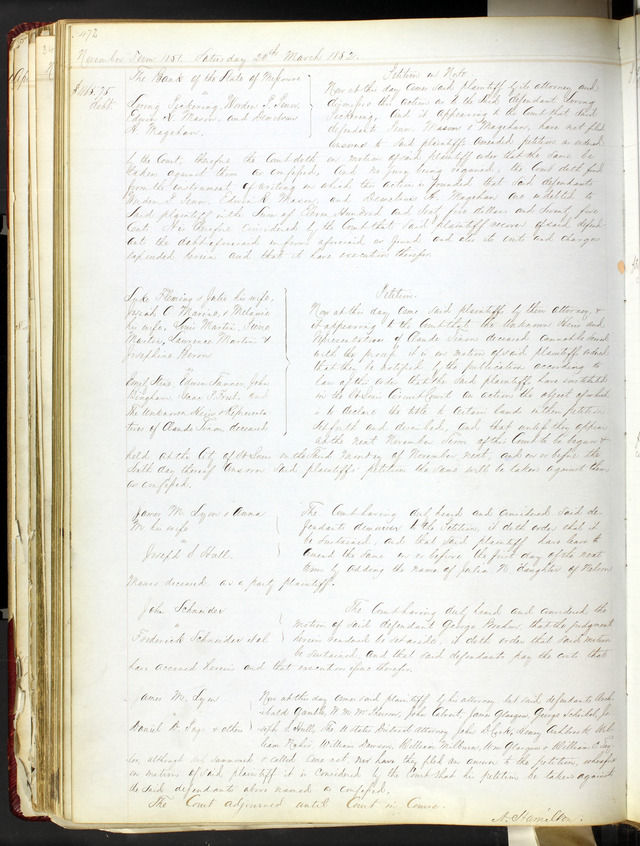 472
November Term 1851. Saturday 20th March 1852.
The Bank of the State of Missouri
vs
Loring Pickering, Warden
Edwin R. Mason, and Demetrius
A. Magehan.
debt
Petition on Note
Now at this day comes said plaintiff by its attorney and
dismisses this action as to the said defendant Loring
Pickering, And it appearing to the Court that said
defendants Mason & Magehan, have not filed
answer to said plaintiffs amended petition as ordered
by the Court, therefore the Court doth on motion of said plaintiff order that the same be
taken against them as confessed, And no jury being required, the Court doth find
from the instrument of writing on which this action is founded that said defendants
Edwin R. Mason and Demetrius A. Magehan are indebted to
said plaintiff in the sum of Eleven Hundred and Sixty five dollars and Seventy five
Cents. It is therefore considered by the Court that said plaintiff recover of said defend-
ants the debt aforesaid in form aforesaid as found and also its costs and charges
expended herein and that it have execution therefor.
Luke Fleming & Julie his wife,
Joseph C. & Melanie
his wife, Louis Martin,
Martin, Laurence Martin &
Josephine Heron
vs
John
Bingham, Isaac T. and
The Unknown Heirs & Representa-
tives of Claude deceased
Petition.
Now at this day come said plaintiffs by their attorney, &
it appearing to the Court that the unknown Heirs and
Representatives of Claude deceased cannot be served
with the process it is on motion of said plaintiffs ordered
that they be notified by the publication according to
law of this order that the said plaintiffs have instituted
in the St Louis Circuit Court an action the object of which
is to declare the title to certain lands in their petition
set forth and described, and that unless they appear
at the next November Term of this Court to be begun &
held at the City of St Louis on the third monday of November next, and on or before the
day thereof answer said plaintiffs petition the same will be taken against them
as confessed.
James M. Lynn & Anna
M. his wife
vs
Joseph S. Hull.
The Court having duly heard and considered said de-
fendants demurrer to the Petition, it doth order that it
be sustained, and that said plaintiffs have leave to
amend the same on or before the first day of the next
term by adding the name of Julia N. daughter of
deceased as a party plaintiff.
John Schneider
vs
Frederick Schneider et al
The Court having duly heard and considered the
motion of said defendant George, that the judgment
herein rendered be set aside, it doth order that said motion
be sustained. And that said defendants pay the costs that
have accrued herein and that execution issue therefor.
James M. Lynn
vs
Daniel D. Page & others
Now at this day comes said plaintiff by his attorney but said defendants Arch-
ibald Gamble, John Calvert, James Glasgow, George Jo-
seph S. Hull, The U States District attorney John D. Cook, Henry Wil-
liam, William Dawson, William, Wm Glasgow & William C.
although not summoned & called come not nor have they filed an answer to the petition, whereupon
on motion of said plaintiff it is considered by the Court that his petition be taken against
the said defendants above named as confessed.
The Court adjourned until Court in Course.
A. Hamilton.